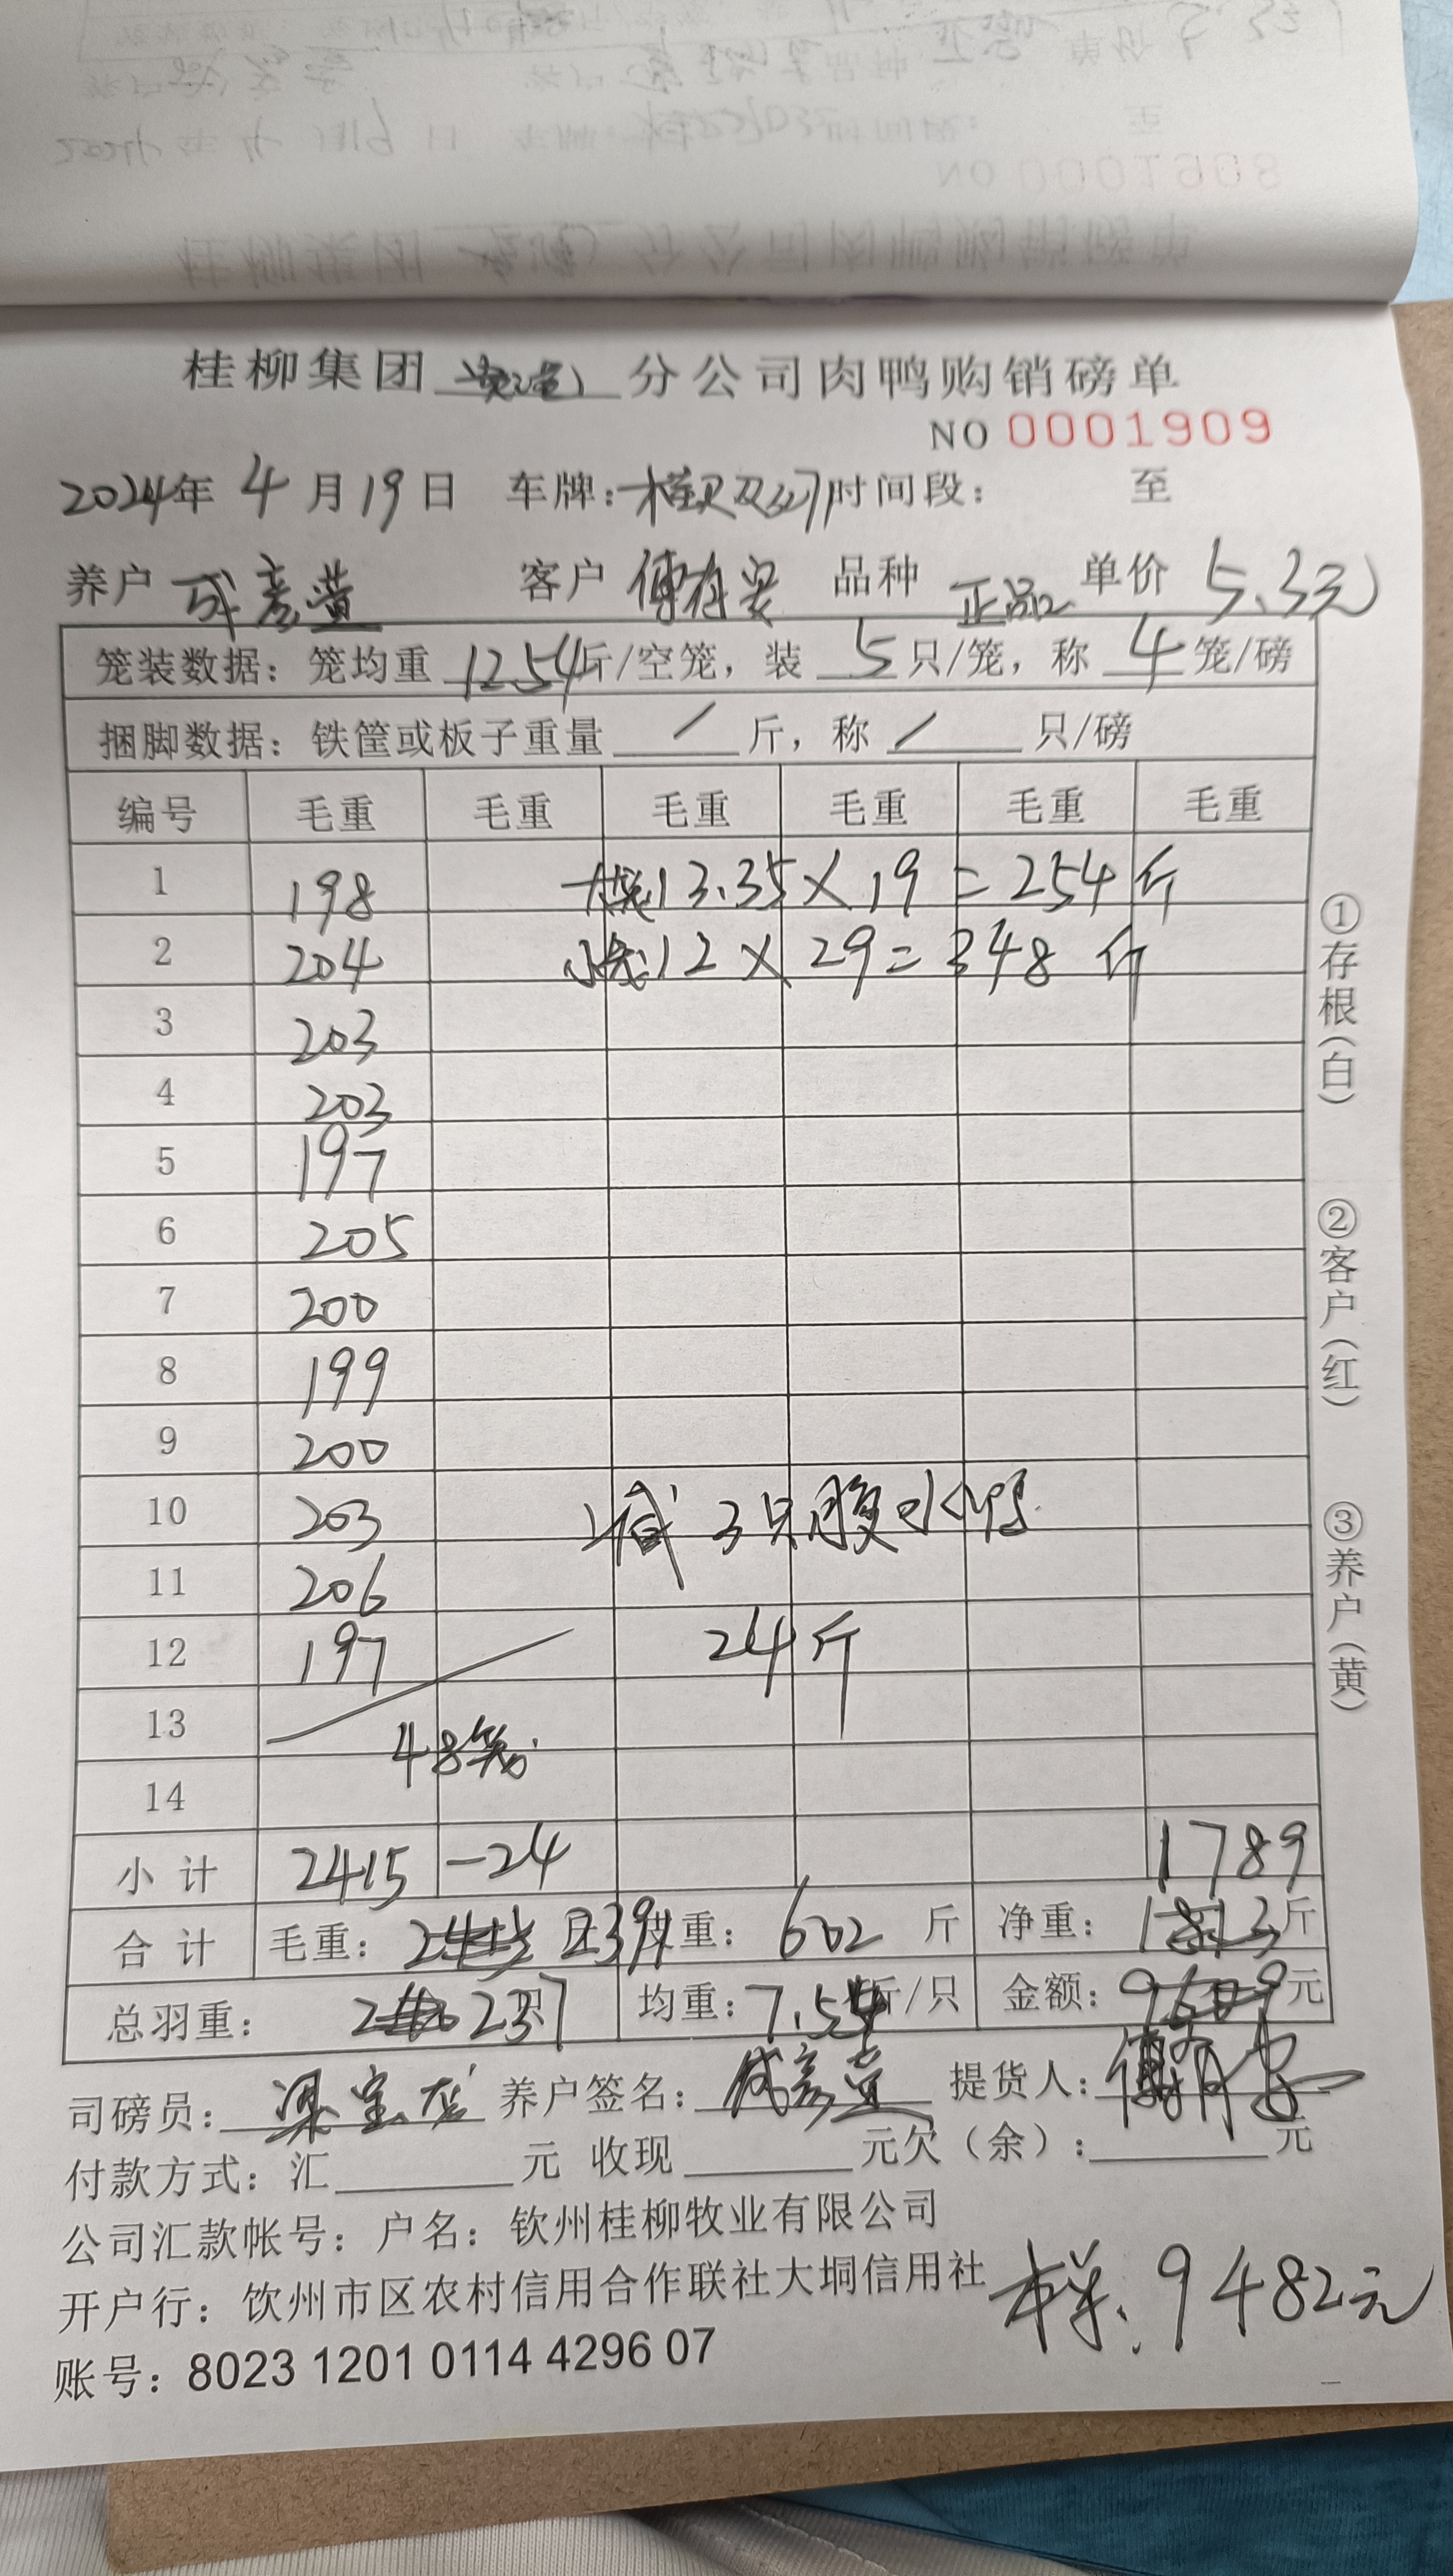 桂柳集团 分公司肉鸭购销磅单
NO 0001909
2024年 4月19日 车牌: 时间段: 至
养户 成彦萱 客户 傅有安 品种 正品 单价 5.3元
笼装数据: 笼均重 12.54斤/空笼, 装 5只/笼, 称 4笼/磅
捆脚数据: 铁筐或板子重量 / 斤, 称 / 只/磅
编号 毛重 毛重 毛重 毛重 毛重 毛重
1 198 大笼13.35×19=254斤
2 204 小笼12×29=348斤
3 203
4 203
5 197
6 205
7 200
8 199
9 200
10 203 减3只腹水鸭
11 206
12 197 24斤
13 48笼
14
小计 2415 -24 1789
合计 毛重: 2391 皮重: 602 斤 净重: 1813斤
总羽重: 237只 均重: 7.54斤/只 金额: 9609元
司磅员: 养户签名: 成彦萱 提货人: 傅有安
付款方式: 汇 元 收现 元欠(余): 元
公司汇款帐号: 户名: 钦州桂柳牧业有限公司
开户行: 饮州市区农村信用合作联社大垌信用社
账号: 8023 1201 0114 4296 07
9482元
①存根(白)
②客户(红)
③养户(黄)